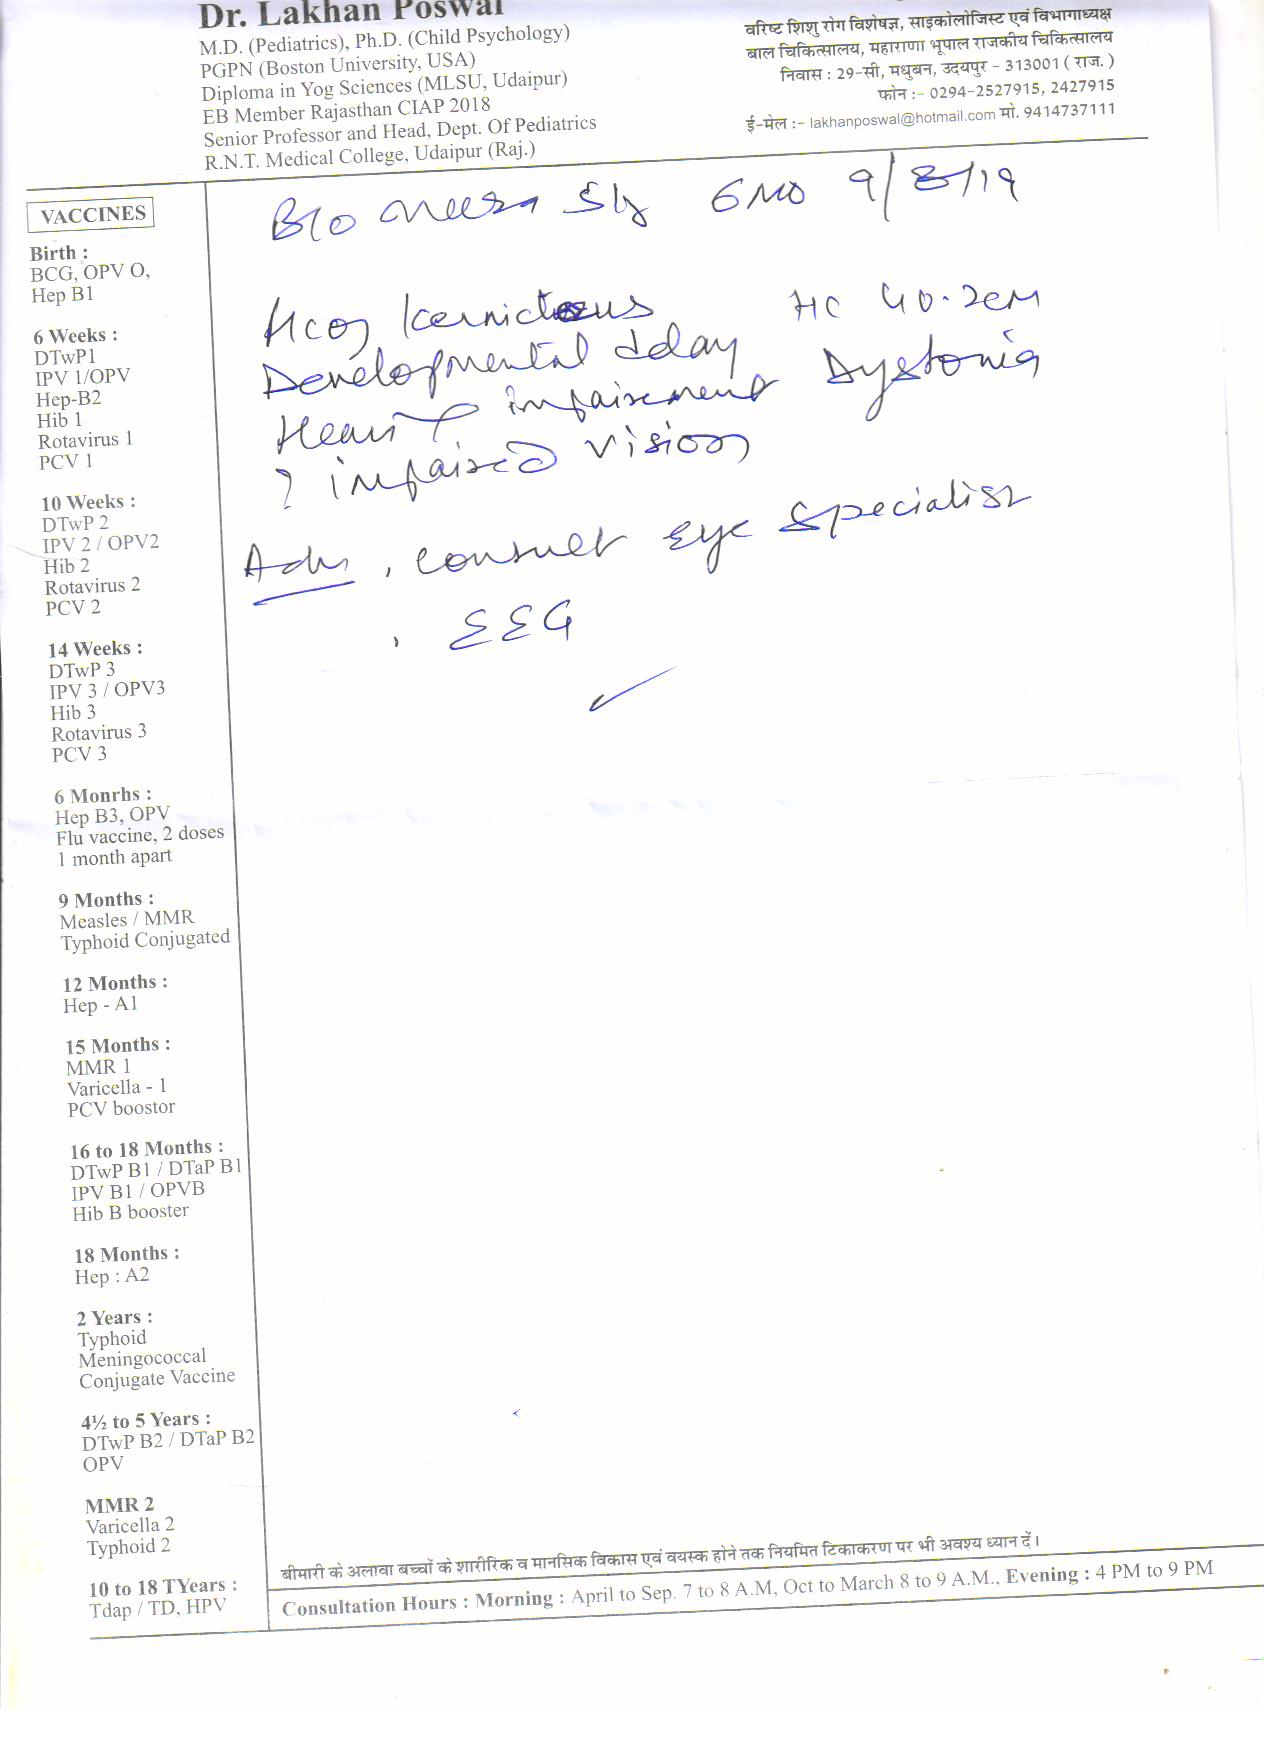 Dr. Lakhan Poswal
M.D. (Pediatrics), Ph.D. (Child Psychology)
PGPN (Boston University, USA)
Diploma in Yog Sciences (MLSU, Udaipur)
EB Member Rajasthan CIAP 2018
Senior Professor and Head, Dept. Of Pediatrics
R.N.T. Medical College, Udaipur (Raj.)
वरिष्ट शिशु रोग विशेषज्ञ, साइकोलोजिस्ट एवं विभागाध्यक्ष
बाल चिकित्सालय, महाराणा भूपाल राजकीय चिकित्सालय
निवास : 29-सी, मधुबन, उदयपुर - 313001 ( राज. )
फोन :- 0294-2527915, 2427915
ई-मेल :- lakhanposwal@hotmail.com मो. 9414737111
VACCINES
Birth :
BCG, OPV O,
Hep B1
6 Weeks :
DTwP1
IPV 1/OPV
Hep-B2
Hib 1
Rotavirus 1
PCV 1
10 Weeks :
DTwP 2
IPV 2 / OPV2
Hib 2
Rotavirus 2
PCV 2
14 Weeks :
DTwP 3
IPV 3 / OPV3
Hib 3
Rotavirus 3
PCV 3
6 Monrhs :
Hep B3, OPV
Flu vaccine, 2 doses
1 month apart
9 Months :
Measles / MMR
Typhoid Conjugated
12 Months :
Hep - A1
15 Months :
MMR 1
Varicella - 1
PCV boostor
16 to 18 Months :
DTwP B1 / DTaP B1
IPV B1 / OPVB
Hib B booster
18 Months :
Hep : A2
2 Years :
Typhoid
Meningococcal
Conjugate Vaccine
4½ to 5 Years :
DTwP B2 / DTaP B2
OPV
MMR 2
Varicella 2
Typhoid 2
10 to 18 TYears :
Tdap / TD, HPV
B/o Meera 6 MO 9/8/19
H/o Kernicterus HC 40.2cm
Developmental delay
impairement Dystonia
? impaired vision
Adv , consult eye specialist
, EEG
बीमारी के अलावा बच्चों के शारीरिक व मानसिक विकास एवं वयस्क होने तक नियमित टिकाकरण पर भी अवश्य ध्यान दें।
Consultation Hours : Morning : April to Sep. 7 to 8 A.M, Oct to March 8 to 9 A.M., Evening : 4 PM to 9 PM